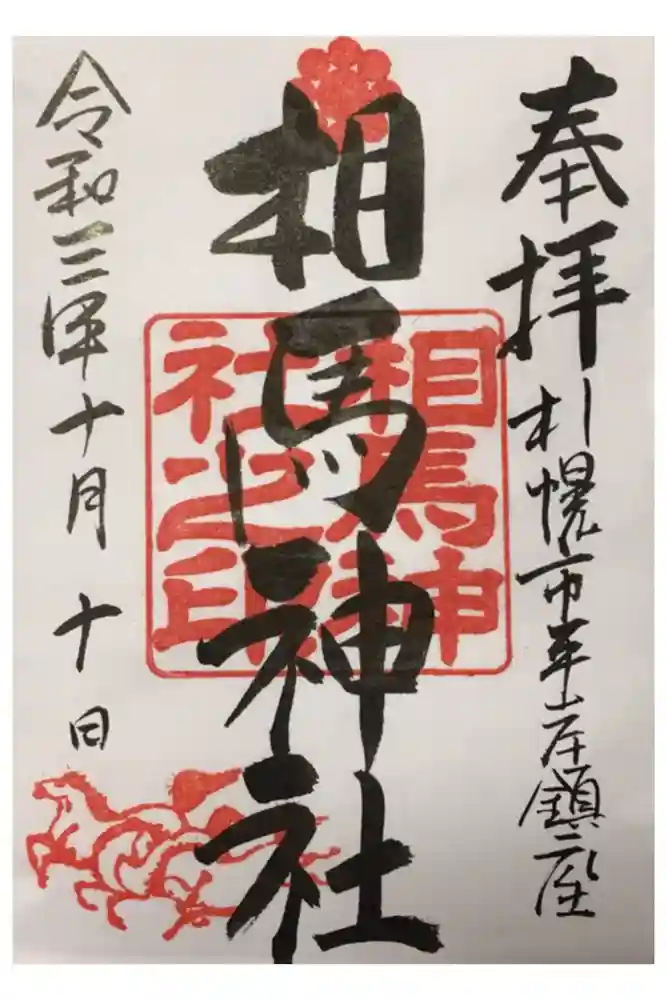 奉拝
札幌市平岸鎮座
相馬神社
相馬神
社之印
令和三年十月十日